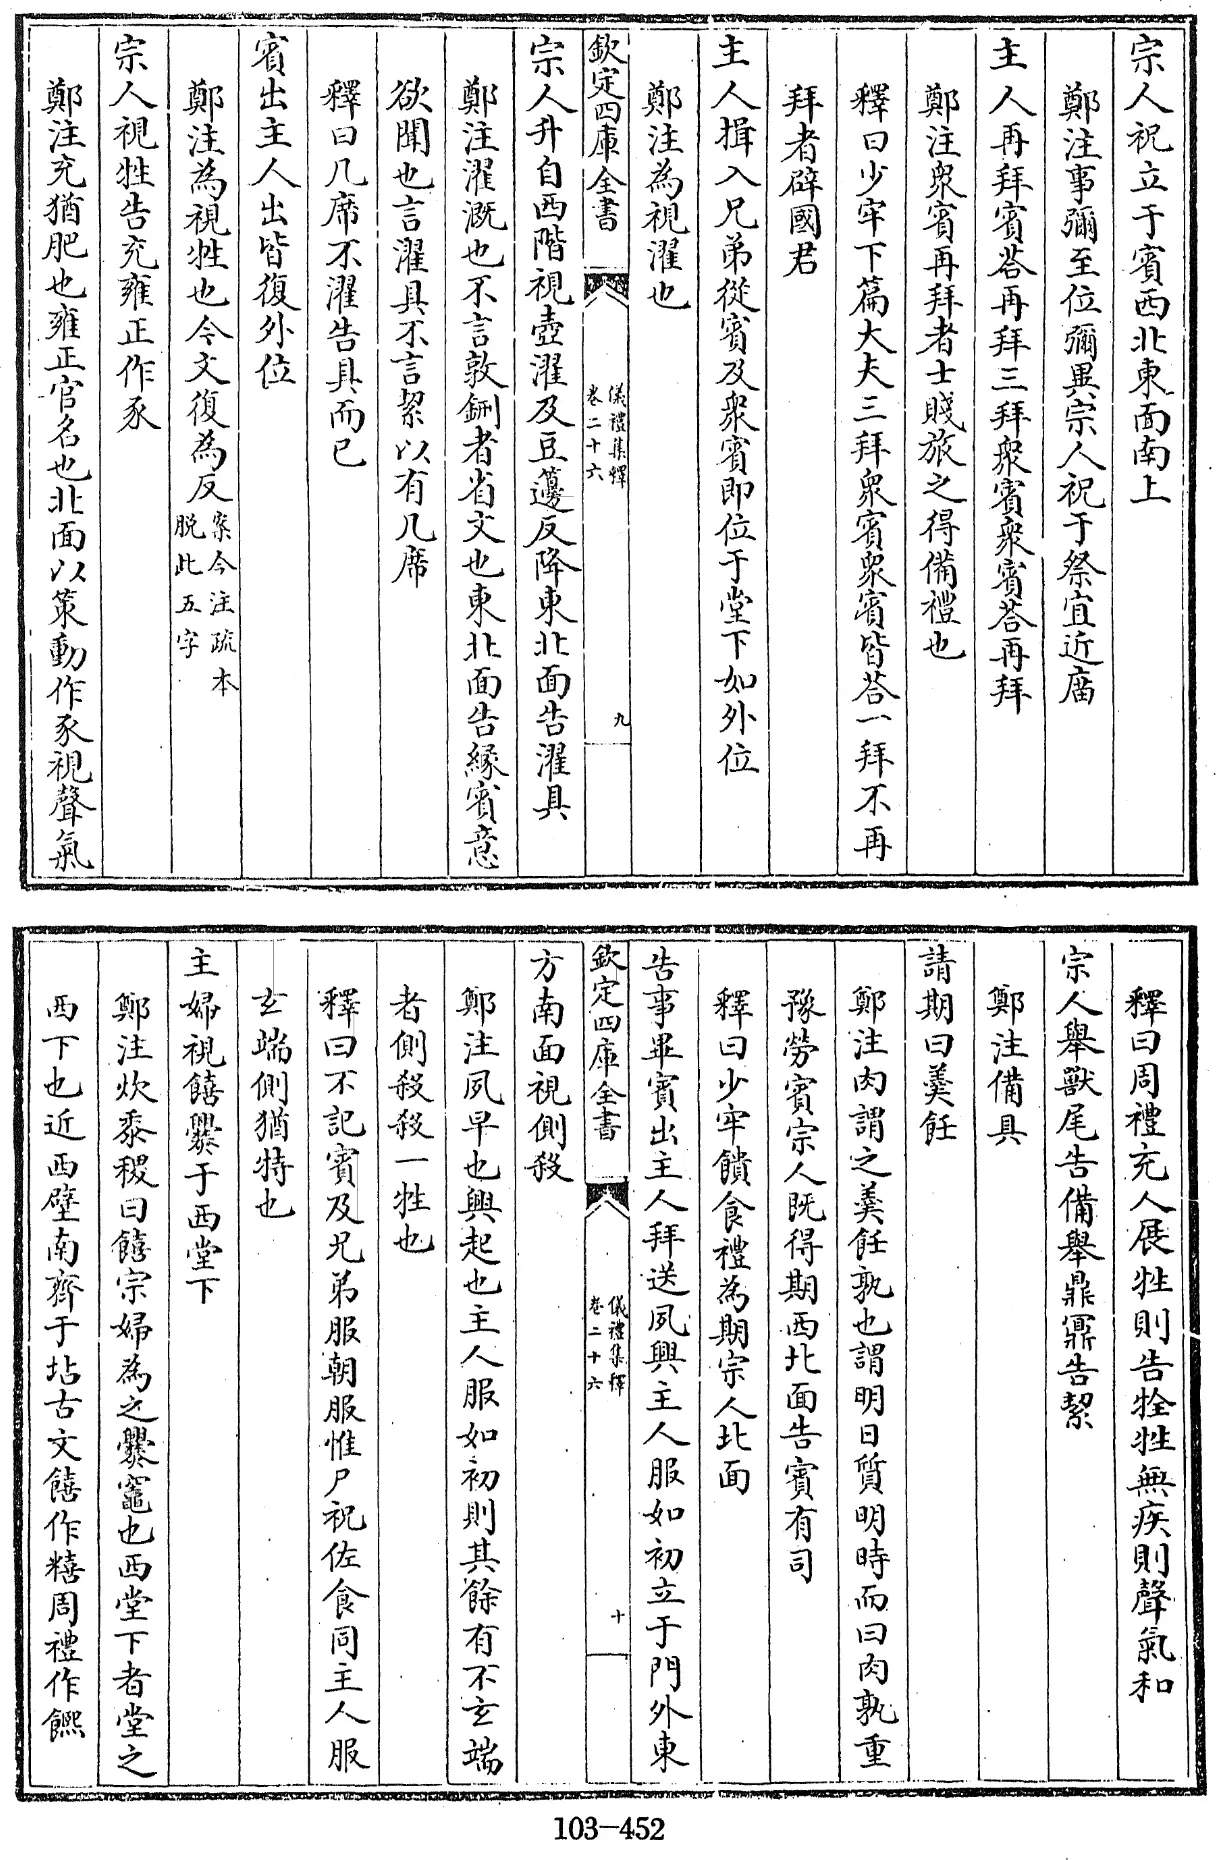 宗人祝立于賓西北東面南上
鄭注事彌至位彌異宗人祝于祭宜近廟
主人再拜賓荅再拜三拜衆賓衆賓荅再拜
鄭注衆賓再拜者士賤旅之得備禮也
釋曰少牢下篇大夫三拜衆賓衆賓皆荅一拜不再
拜者辟國君
主人揖入兄弟從賓及衆賓即位于堂下如外位
鄭注為視濯也
欽定四庫全書
儀禮集釋
卷二十六
九
宗人升自西階視壺濯及豆籩反降東北面告濯具
鄭注濯溉也不言敦鉶者省文也東北面告緣賓意
欲聞也言濯具不言絜以有几席
釋曰几席不濯告具而已
賓出主人出皆復外位
鄭注為視牲也今文復為反案今注疏本脱此五字
宗人視牲告充雍正作豕
鄭注充猶肥也雍正官名也北面以策動作豕視聲氣
釋曰周禮充人展牲則告牷牲無疾則聲氣和
宗人舉獸尾告備舉鼎鼏告絜
鄭注備具
請期曰羹飪
鄭注肉謂之羹飪孰也謂明日質明時而曰肉孰重
豫勞賓宗人既得期西北面告賓有司
釋曰少牢饋食禮為期宗人北面
告事畢賓出主人拜送夙興主人服如初立于門外東
欽定四庫全書
儀禮集釋
卷二十六
十
方南面視側殺
鄭注夙早也興起也主人服如初則其餘有不玄端
者側殺殺一牲也
釋曰不記賓及兄弟服朝服惟尸祝佐食同主人服
玄端側猶特也
主婦視饎爨于西堂下
鄭注炊黍稷曰饎宗婦為之爨竈也西堂下者堂之
西下也近西壁南齊于坫古文饎作糦周禮作䭓
103-452